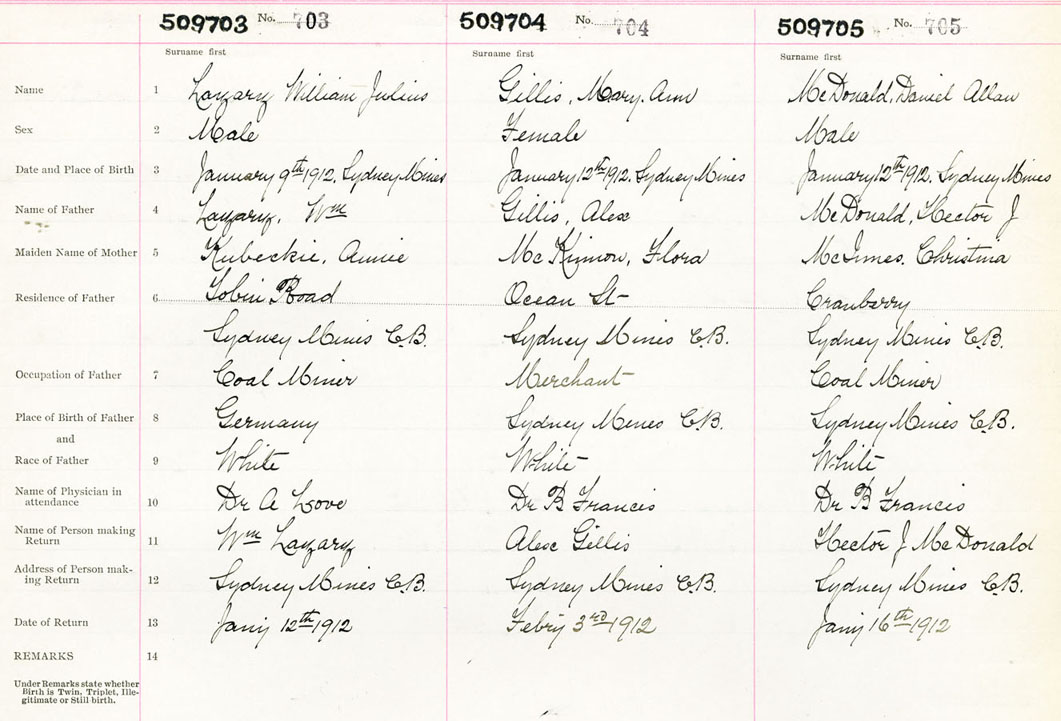 509703 No. 703 509704 No. 704 509705 No. 705
Surname first Surname first Surname first
Name 1 Lazary William Julius Gillis, Mary Ann McDonald, Daniel Allan
Sex 2 Male Female Male
Date and Place of Birth 3 January 9th 1912, Sydney Mines January 12th 1912, Sydney Mines January 12th 1912, Sydney Mines
Name of Father 4 Lazary, Wm Gillis, Alex McDonald, Hector J
Maiden Name of Mother 5 Kubeckie, Annie McKinnon, Flora McInnes, Christina
Residence of Father 6 Tobin Road Ocean St Cranberry
Sydney Mines C.B. Sydney Mines C.B. Sydney Mines C.B.
Occupation of Father 7 Coal Miner Merchant Coal Miner
Place of Birth of Father 8 Germany Sydney Mines C.B. Sydney Mines C.B.
and
Race of Father 9 White White White
Name of Physician in
attendance 10 Dr A Love Dr B Francis Dr B Francis
Name of Person making
Return 11 Wm Lazary Alex Gillis Hector J McDonald
Address of Person mak-
ing Return 12 Sydney Mines C.B. Sydney Mines C.B. Sydney Mines C.B.
Date of Return 13 Jany 12th 1912 Febry 3rd 1912 Jany 16th 1912
REMARKS 14
Under Remarks state whether
Birth is Twin, Triplet, Ille-
gitimate or Still birth.